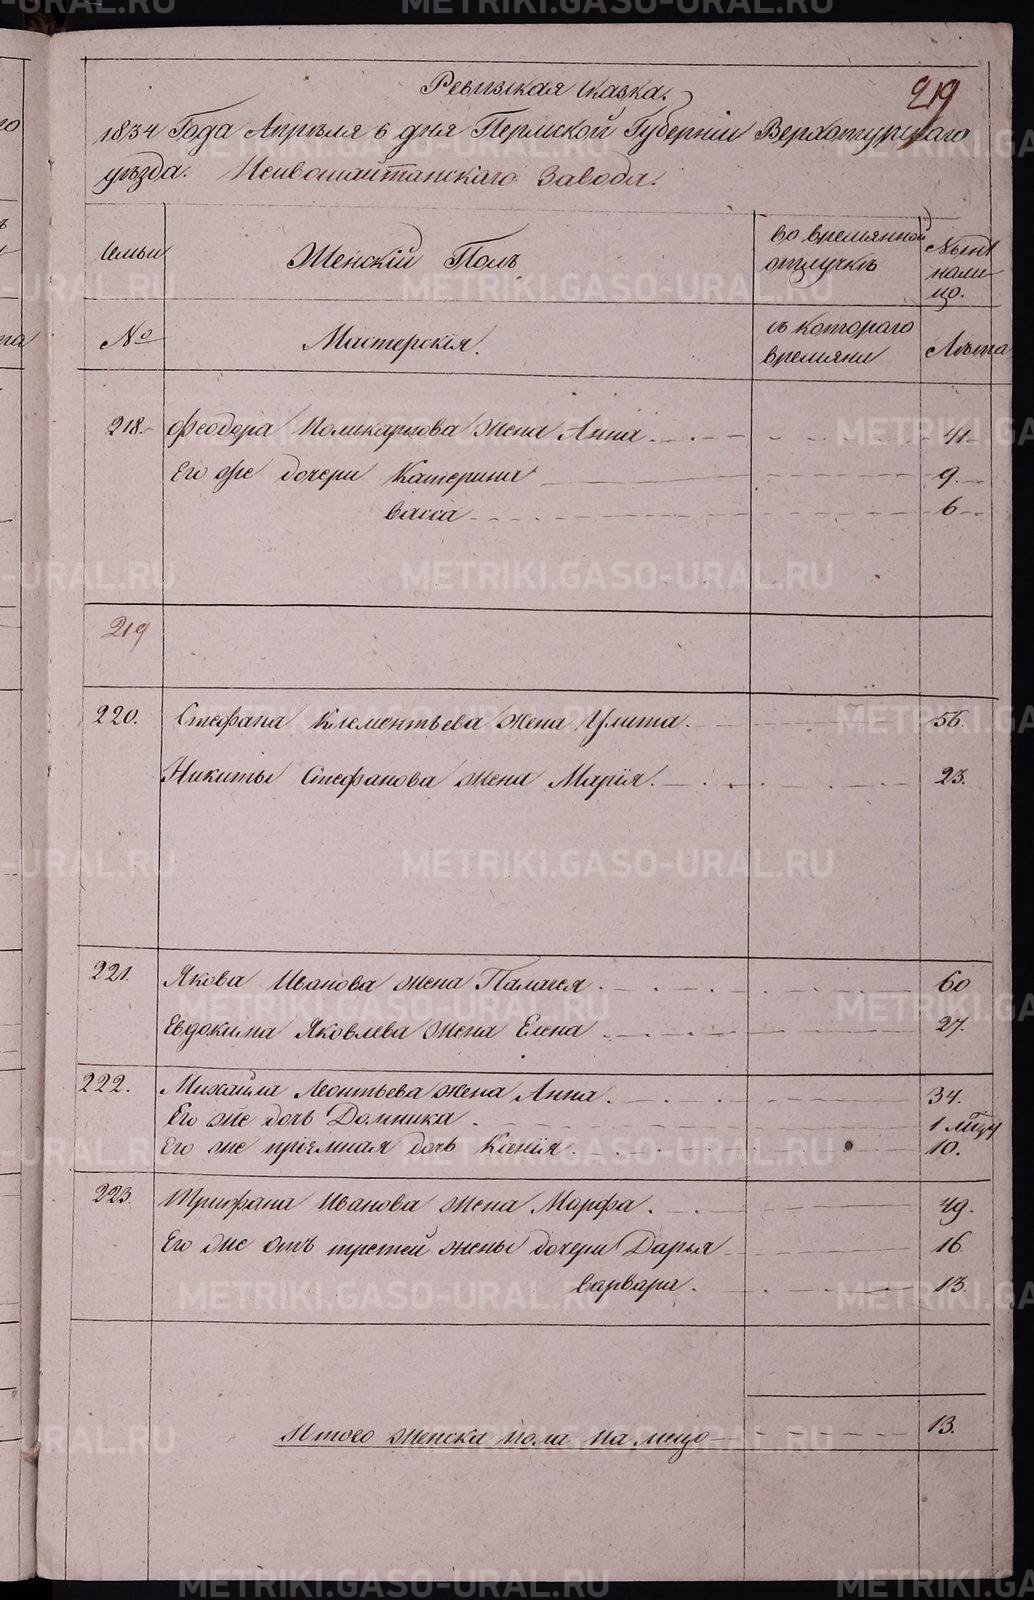 219
Ревизская сказка.
1834 Года Апреля 6 дня Пермской Губерніи Верхотурскаго
уѣзда. Нейвошайтанскаго Завода.
Семьи
Женскій Полъ
во времянной
отлучкѣ
Нынѣ
нали-
цо.
№
Мастерскія.
съ котораго
времяни
Лѣта
218. Феодора Поликарпова жена Анна. 41
Его же дочери Катерина 9.
Васса 6
219
220. Стефана Клементьева жена Улита. 56.
Никиты Стефанова жена Марія. 23.
221. Якова Иванова жена Палагея. 60
Евдокима Яковлева жена Елена 27.
222. Михайла Леонтьева жена Анна. 34.
Его же дочь Домника. 1
Его же пріемная дочь Ксенія. 10.
223. Трифана Иванова жена Марфа. 49.
Его же отъ третей жены дочери Дарья 16
Варвара. 13.
Итого женска пола на лицо 13.
METRIKI.GASO-URAL.RU